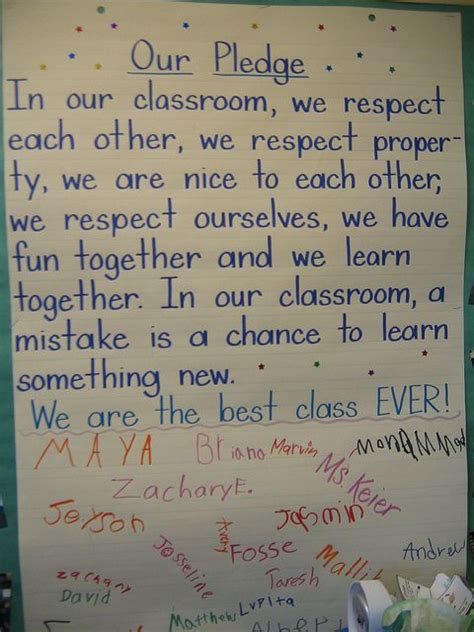 Our Pledge
In our classroom, we respect
each other, we respect proper-
ty, we are nice to each other,
we respect ourselves, we have
fun together and we learn
together. In our classroom, a
mistake is a chance to learn
something new.
We are the best class EVER!
MAYA Briana Marvin
ZacharyE. Ms. Keier
Jerson Jasmin
Josseline Fosse Andrew
Zachary Taresh
David Lupita
Matthew